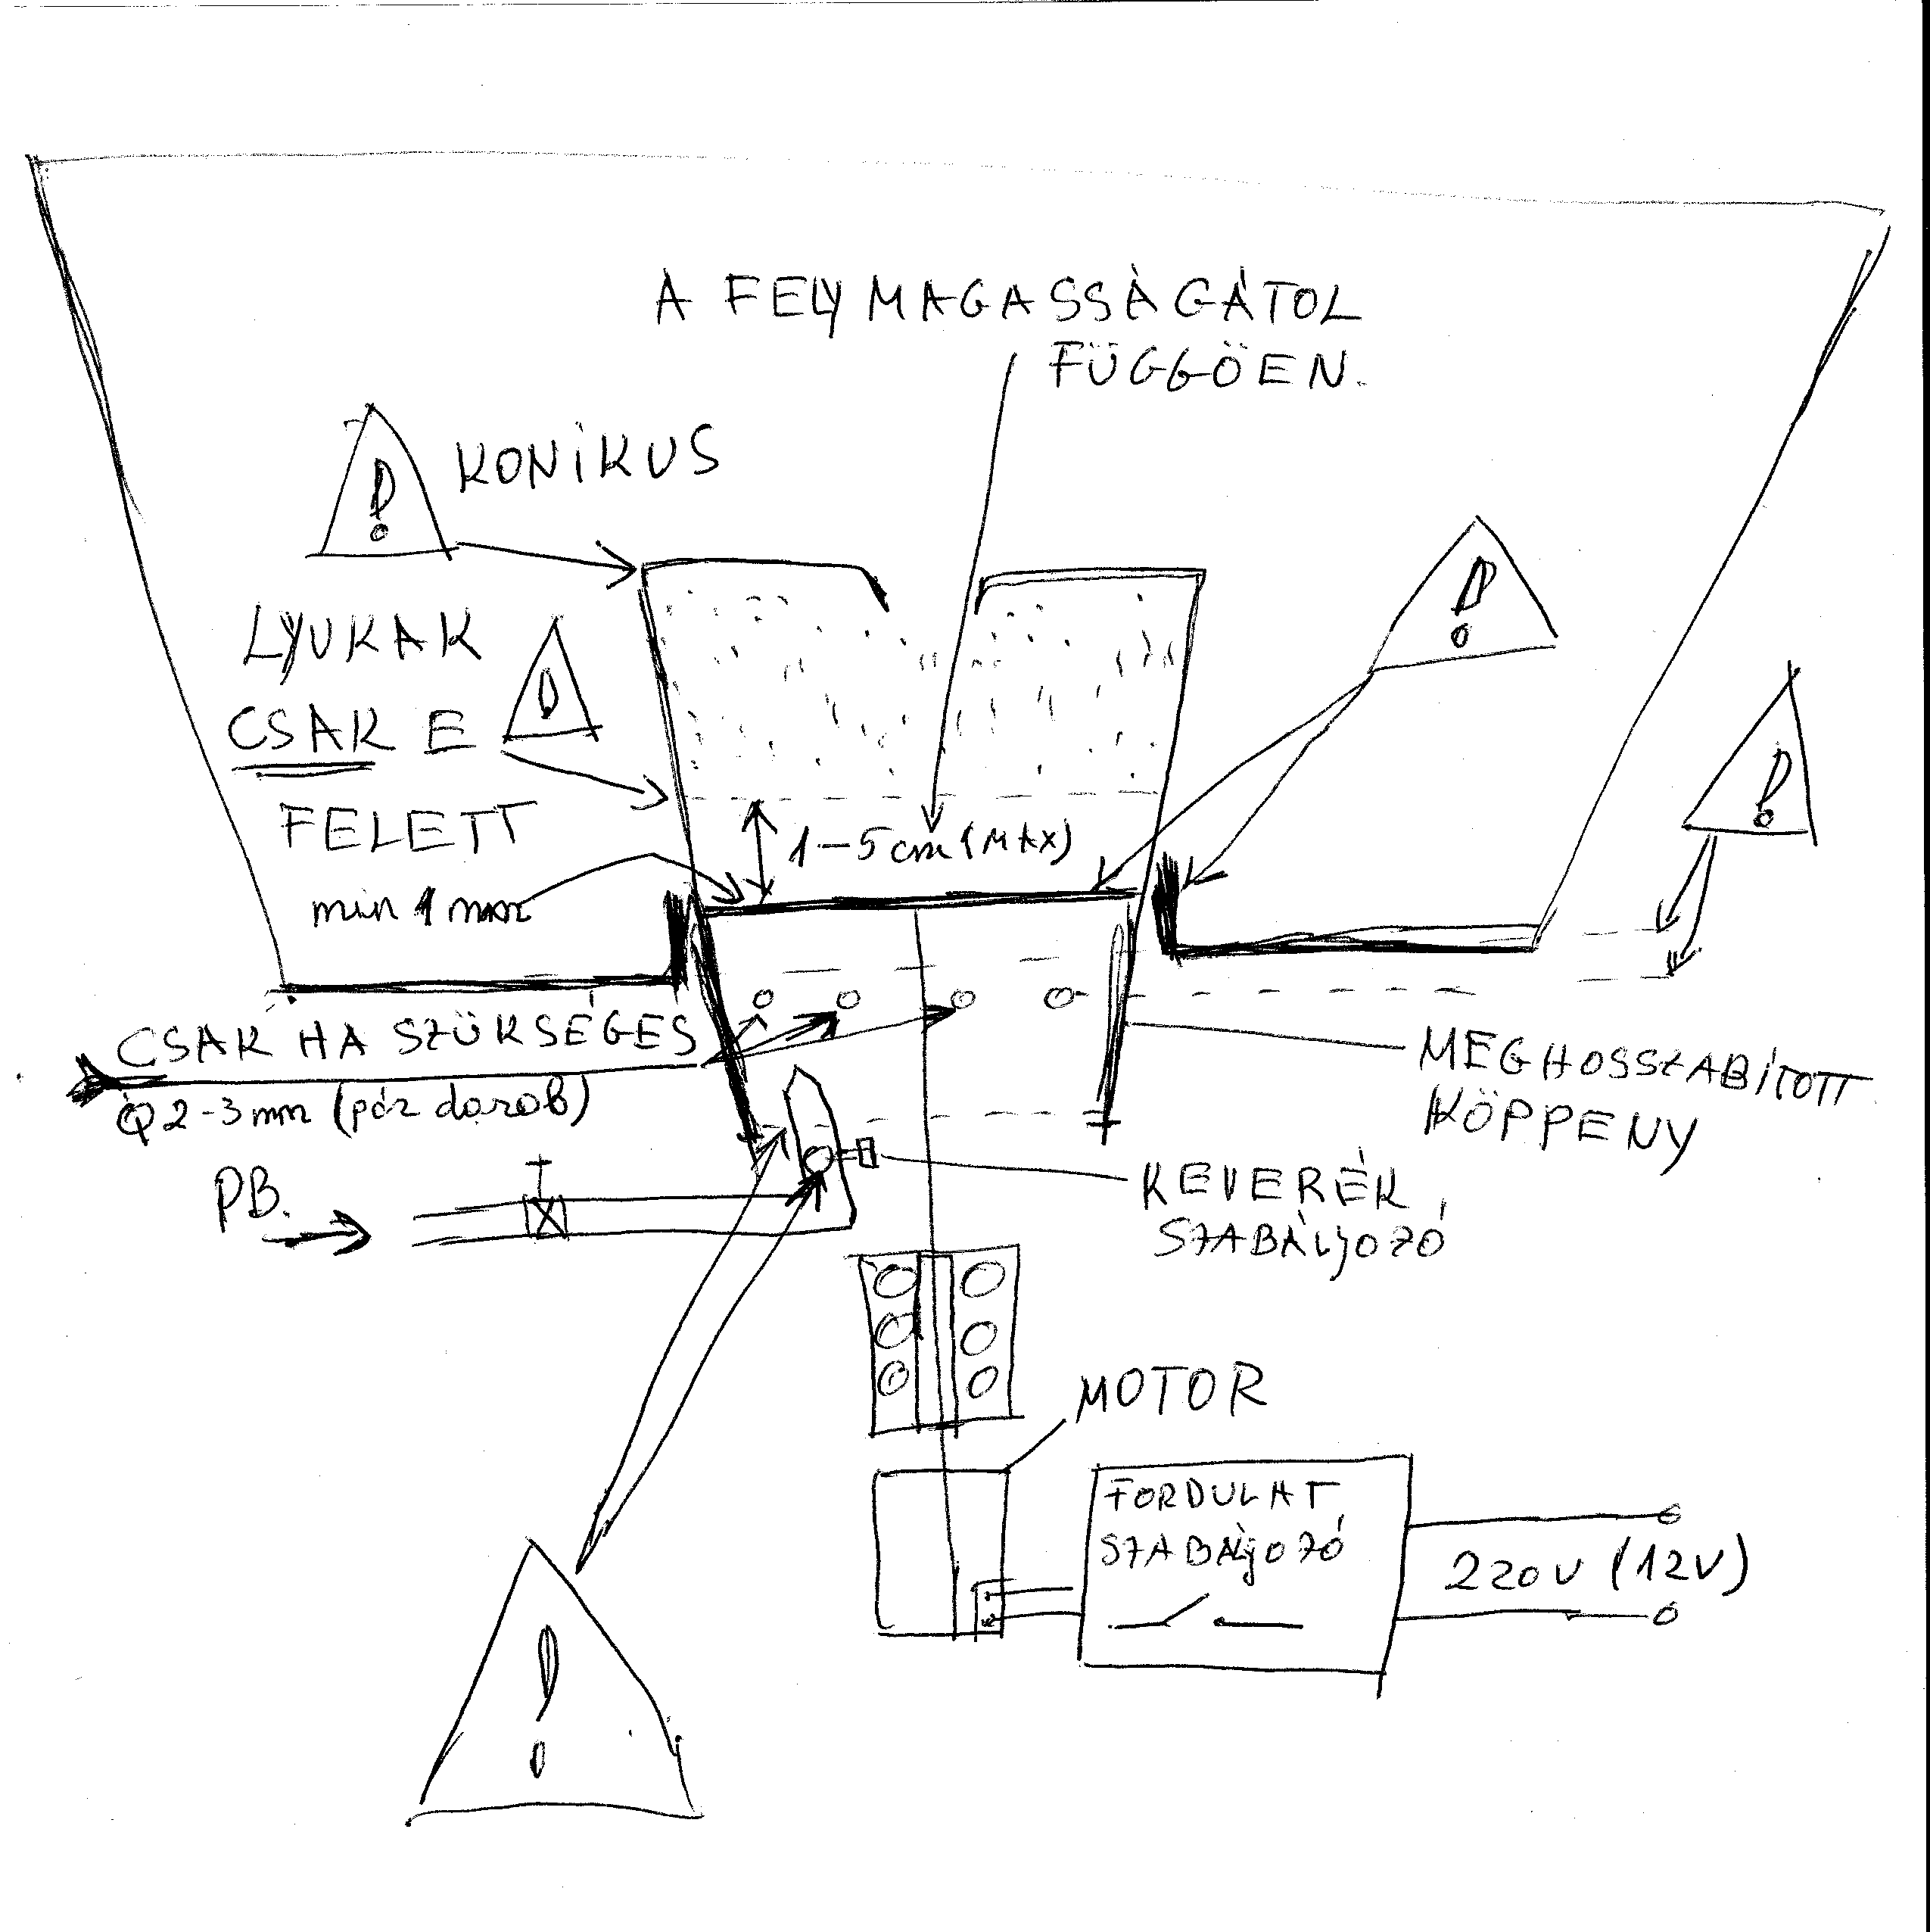 A FELY MAGASSÀGÁTOL
FÜGGÖEN.
KONIKUS
LYUKAK
CSAK E
FELETT
1-5 cm (MAX)
min 1 mm
CSAK HA SZÜKSÉGES
Ø 2-3 mm (pár darab)
MEGHOSSZABÍTOTT
KÖPPENY
PB.
KEVERÉK
SZABÁLYOZÓ
MOTOR
FORDULAT
SZABÁLYOZÓ
220V (12V)